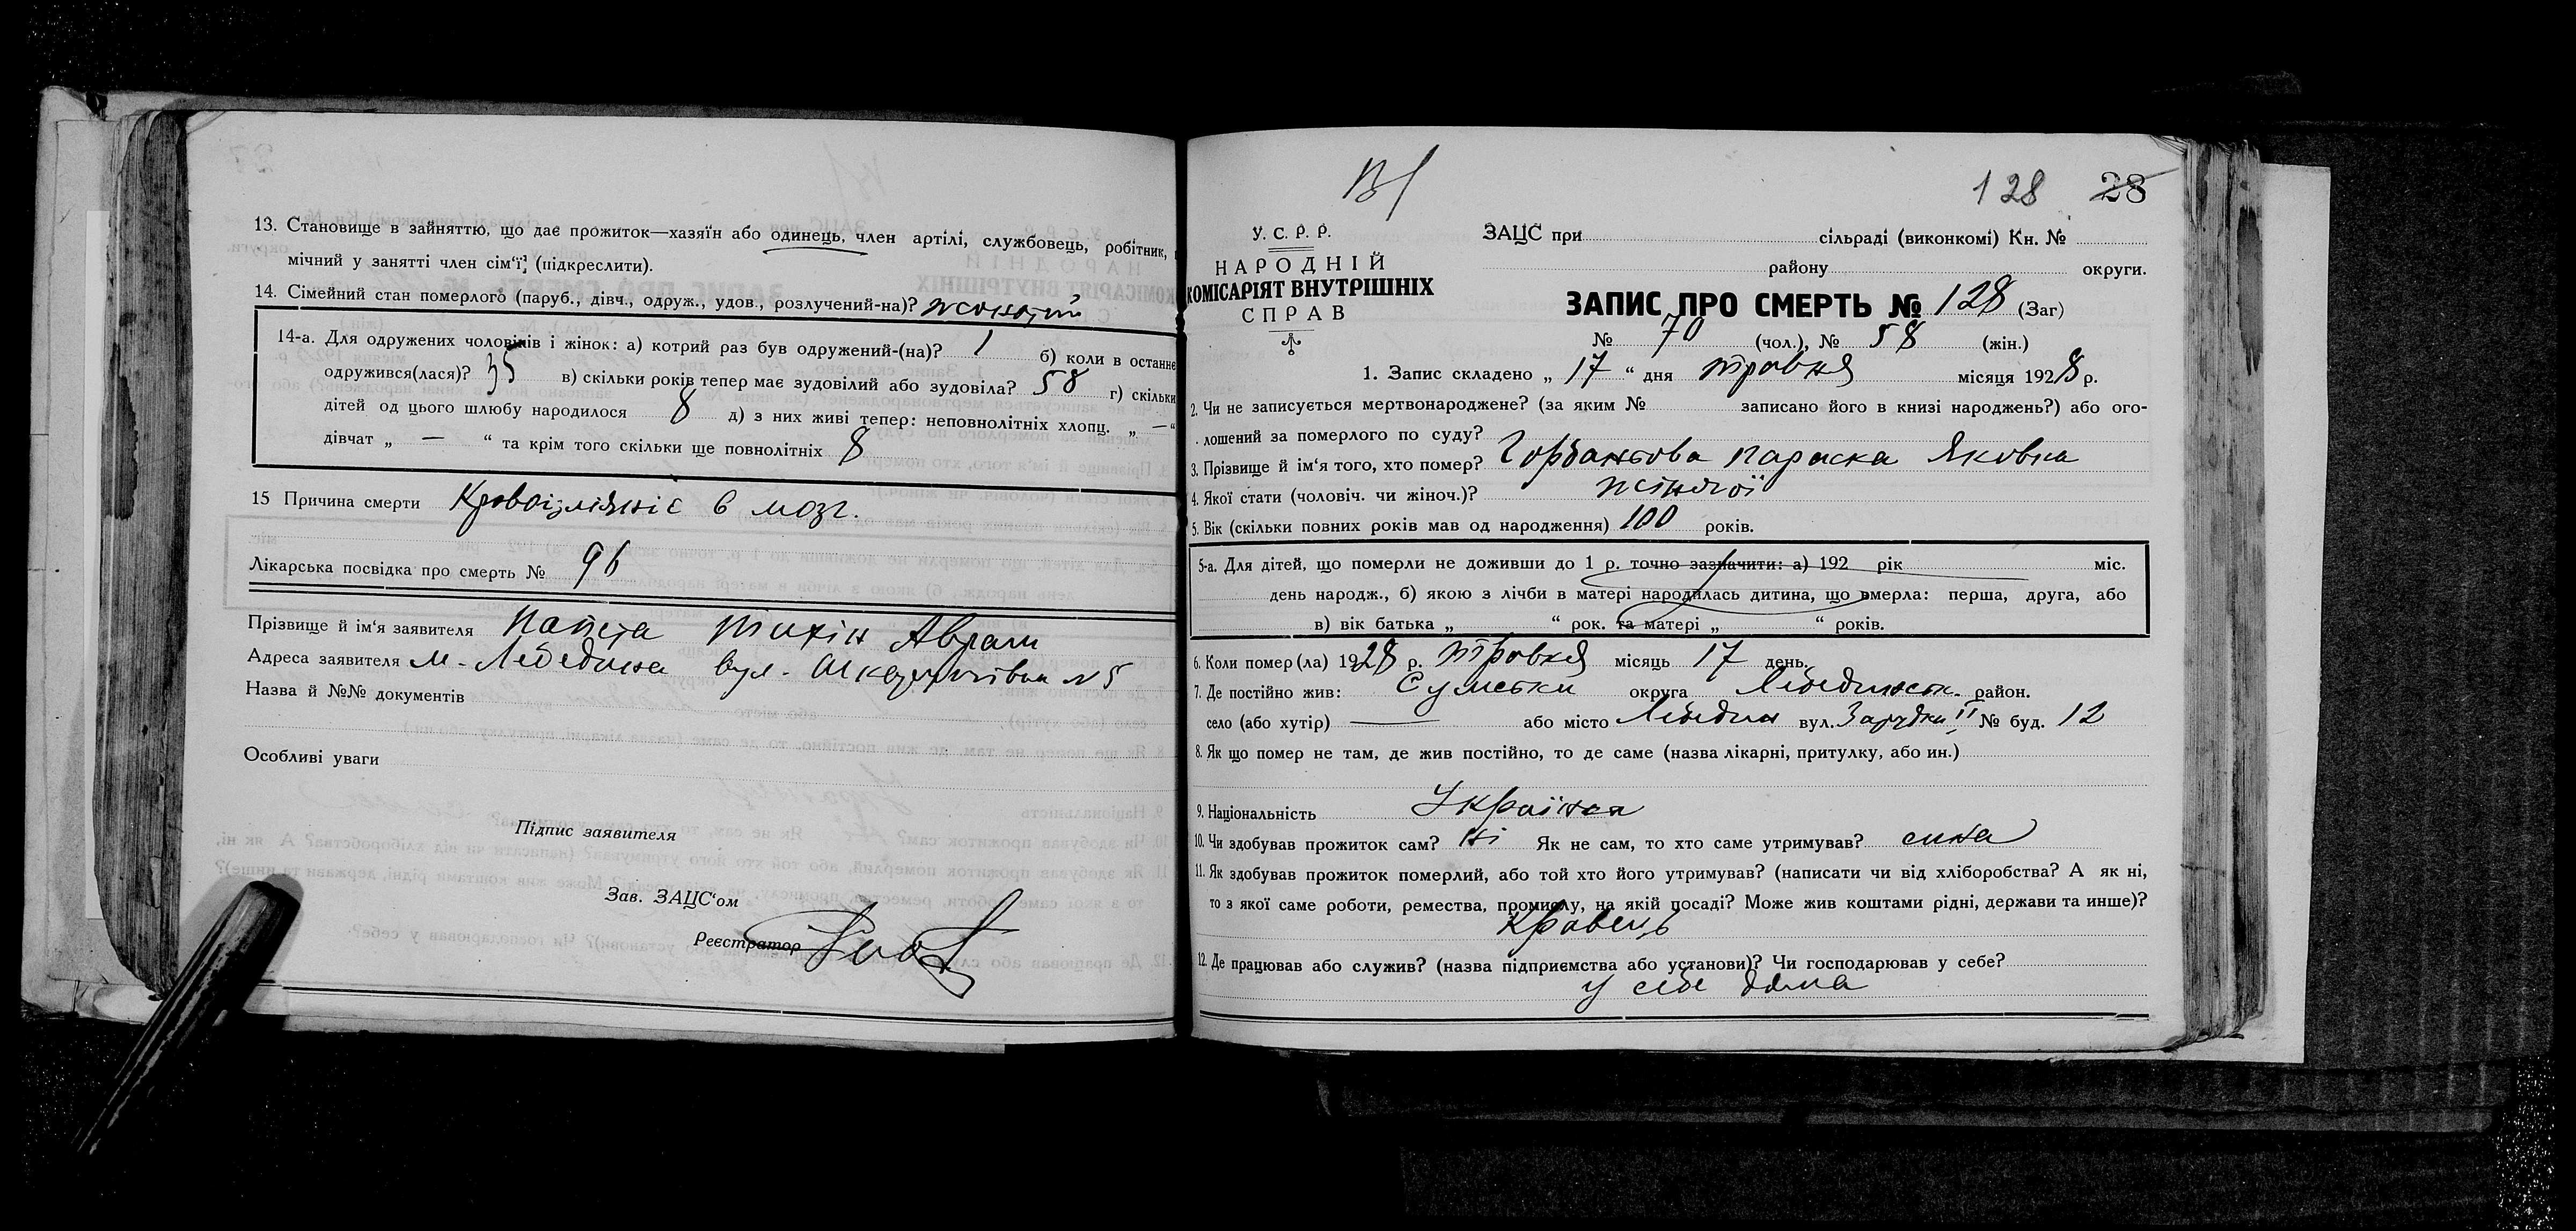 13. Становище в зайняттю, що дає прожиток—хазяїн або одинець, член артілі, службовець, робітник,
мічний у занятті член сім'ї, (підкреслити).
14. Сімейний стан померлого (паруб., дівч., одруж., удов., розлучений-на)? жонатий
14-а. Для одружених чоловіків і жінок: а) котрий раз був одружений-(на)? 1 б) коли в останнє
одружився(лася)? 35 в) скільки років тепер має зудовілий або зудовіла? 58 г) скільки
дітей од цього шлюбу народилося 8 д) з них живі тепер: неповнолітніх хлопц. „ — “
дівчат „ — “ та крім того скільки ще повнолітніх 8
15 Причина смерти Кровоізліяніє в мозг.
Лікарська посвідка про смерть № 96
Прізвище й ім'я заявителя Авраам
Адреса заявителя м. Лебедина вул. №5
Назва й №№ документів
Особливі уваги
Підпис заявителя
Зав. ЗАЦС'ом
Реєстратор
ВІ
128 28
У. С. Р. Р.
НАРОДНІЙ
КОМІСАРІЯТ ВНУТРІШНІХ
СПРАВ
ЗАЦС при сільраді (виконкомі) Кн. №
району округи.
ЗАПИС ПРО СМЕРТЬ № 128 (Заг)
№ 70 (чол.), № 58 (жін.)
1. Запис складено „ 17 “ дня травня місяця 1928 р.
2. Чи не записується мертвонароджене? (за яким № записано його в книзі народжень?) або ого-
лошений за померлого по суду?
3. Прізвище й ім'я того, хто помер? Горбаньова Параска Яковна
4. Якої стати (чоловіч. чи жіноч.)? жіночої
5. Вік (скільки повних років мав од народження) 100 років.
5-а. Для дітей, що померли не доживши до 1 р. точно зазначити: а) 192 рік міс.
день народж., б) якою з лічби в матері народилась дитина, що вмерла: перша, друга, або
в) вік батька „ “ рок. та матері „ “ років.
6. Коли помер(ла) 1928 р. травня місяць 17 день.
7. Де постійно жив: Сумськи округа Лебединськ. район.
село (або хутір) — або місто Лебедин вул. Зарудки II № буд. 12
8. Як що помер не там, де жив постійно, то де саме (назва лікарні, притулку, або ин.)
9. Національність Українка
10. Чи здобував прожиток сам? Ні Як не сам, то хто саме утримував? сина
11. Як здобував прожиток померлий, або той хто його утримував? (написати чи від хліборобства? А як ні,
то з якої саме роботи, ремества, промислу, на якій посаді? Може жив коштами рідні, держави та инше)?
Кравець
12. Де працював або служив? (назва підприємства або установи)? Чи господарював у себе?
у себе дома